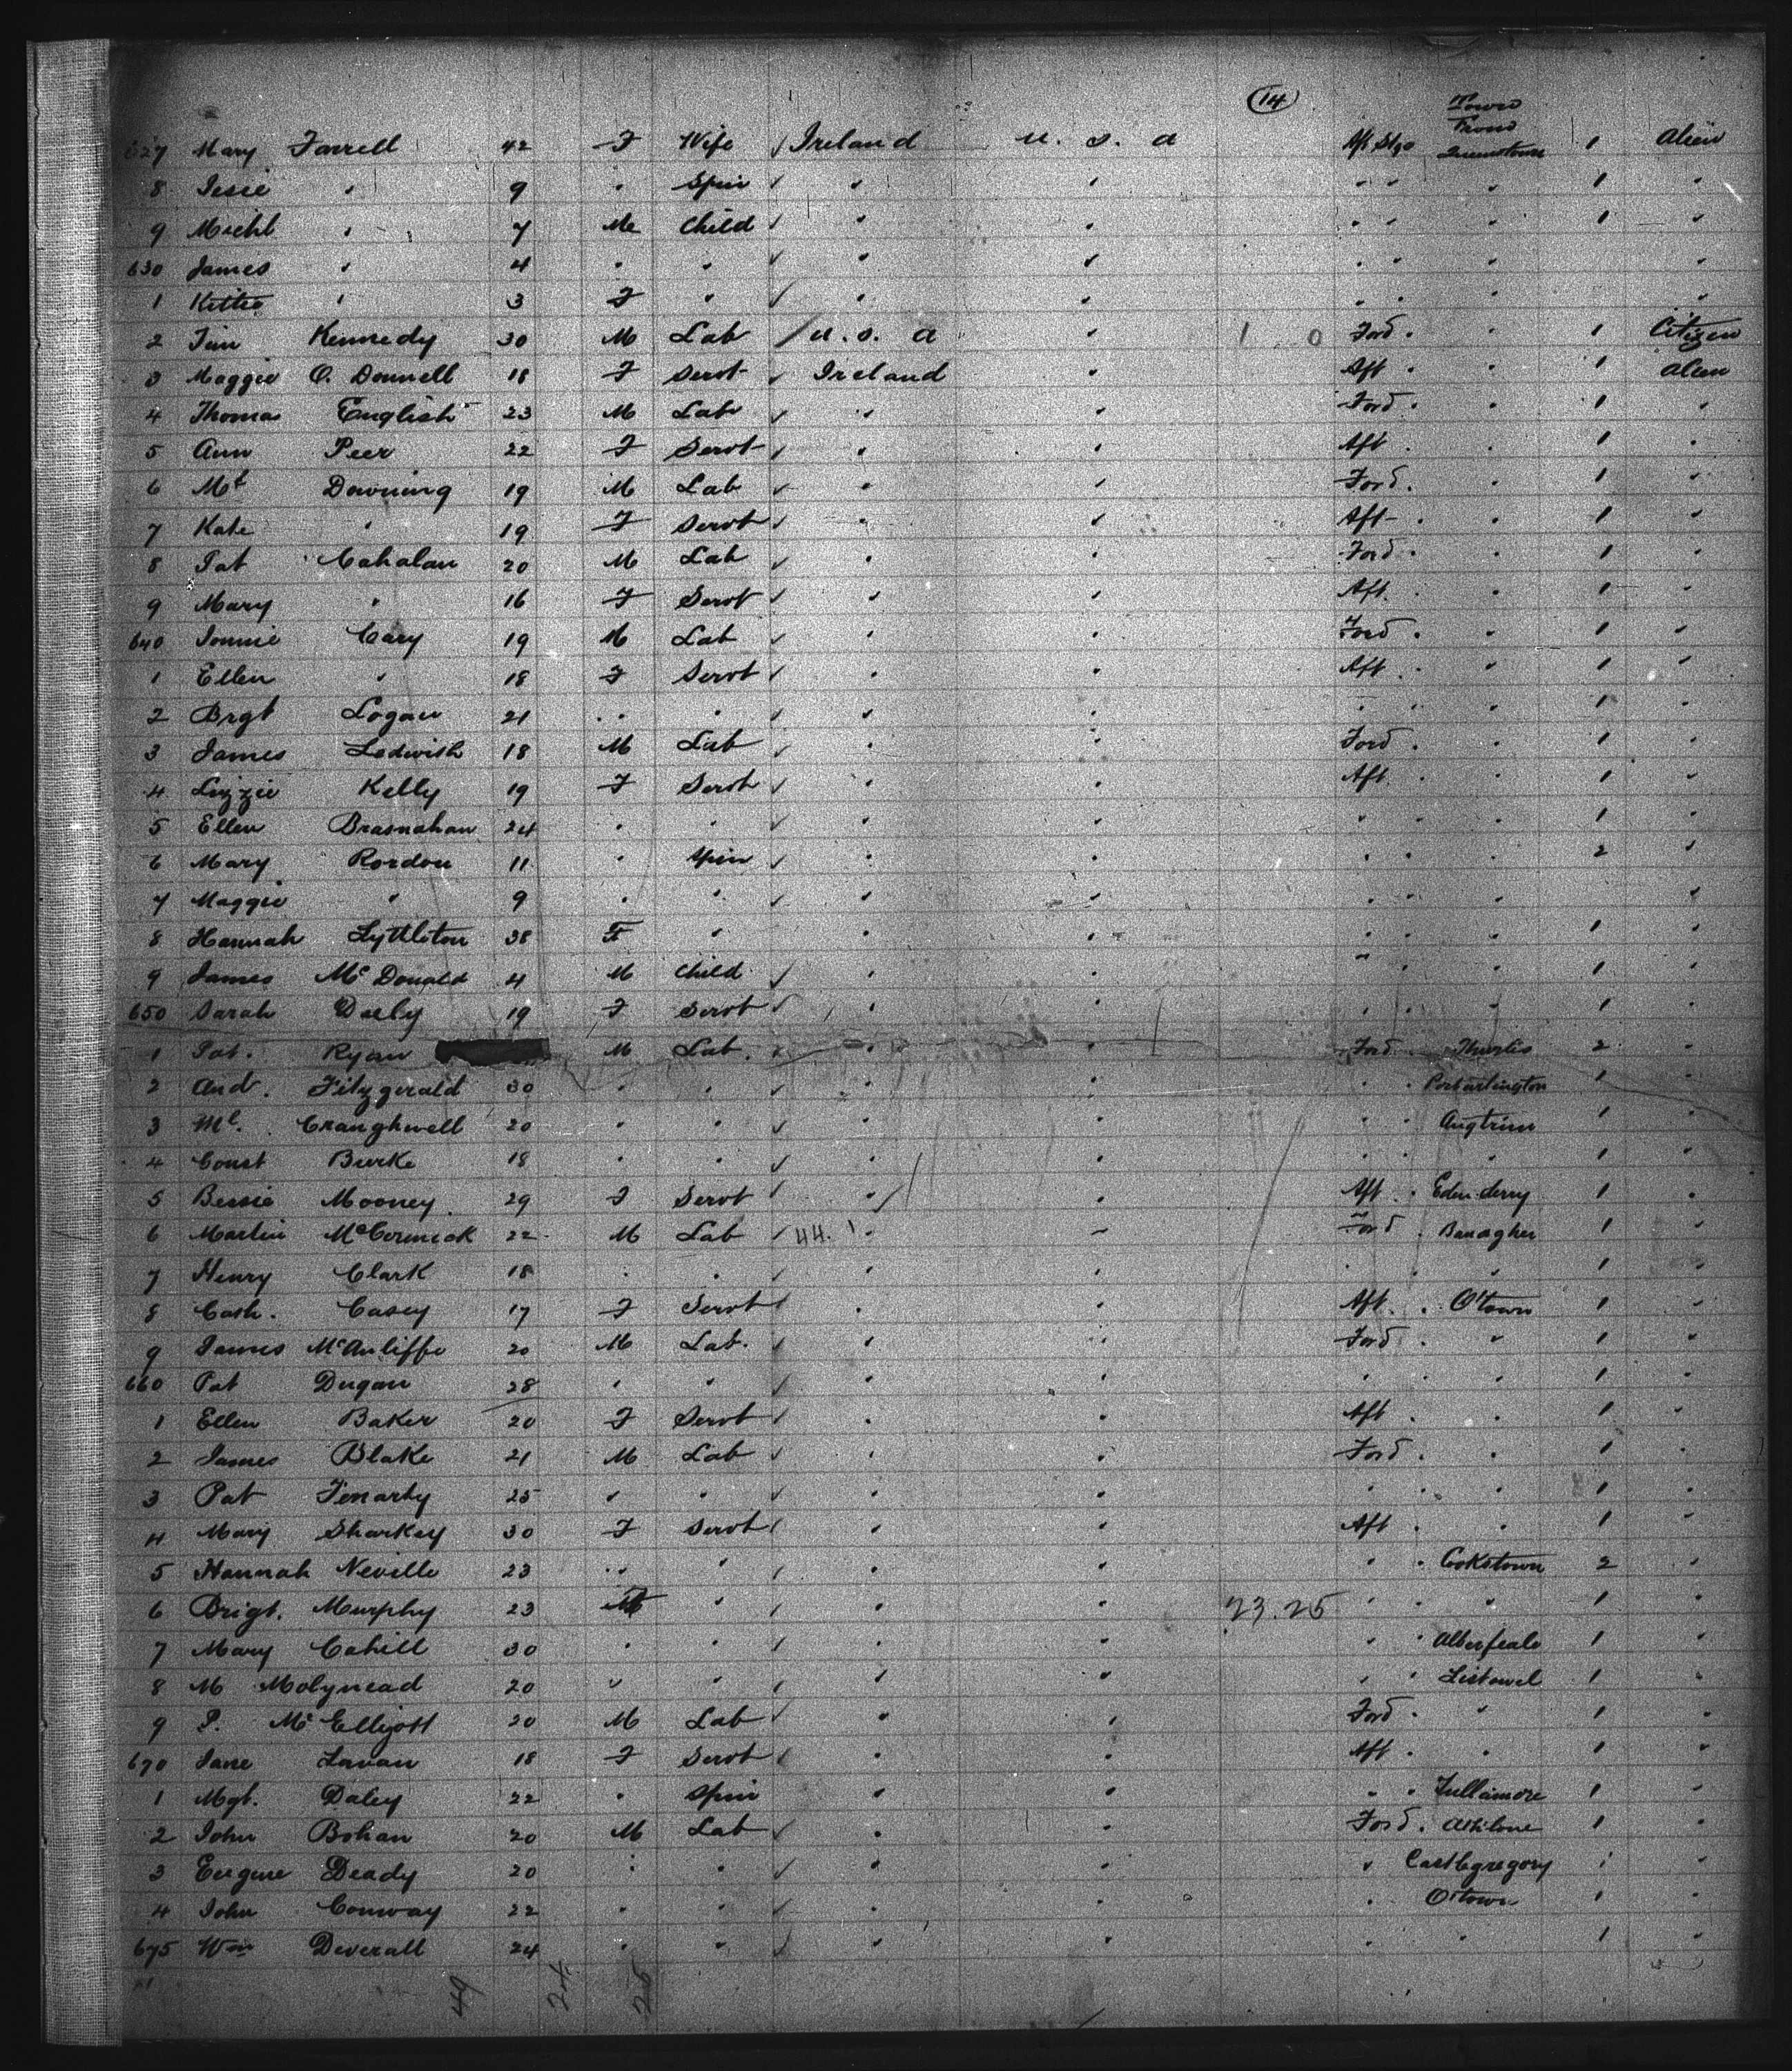 14
Town From
627 Mary Farrell 42 F Wife ✓ Ireland U. S. A Aft Stge Queenstown 1 Alien
8 Jesie " 9 " Spin ✓ " " " " " 1 "
9 Michl " 7 M Child ✓ " " " " " 1 "
630 James " 4 " " ✓ " " " " " "
1 Kittie " 3 F " ✓ " " " " " "
2 Tim Kennedy 30 M Lab ✓ U. S. A " 1 0 Ford " " 1 Citizen
3 Maggie O. Donnell 18 F Servt ✓ Ireland " Aft " " 1 Alien
4 Thomas English 23 M Lab ✓ " " Ford " " 1 "
5 Ann Peer 22 F Servt ✓ " " Aft " 1 "
6 Mt Downing 19 M Lab ✓ " " Ford. " 1 "
7 Kate " 19 F Servt ✓ " " Aft " " 1 "
8 Pat Cahalan 20 M Lab ✓ " " Ford " " 1 "
9 Mary " 16 F Servt ✓ " " Aft " " 1 "
640 Jonnie Cary 19 M Lab ✓ " " Ford " " 1 "
1 Ellen " 18 F Servt ✓ " " Aft " " 1 "
2 Brgt Logan 21 " " ✓ " " " " " 1 "
3 James Ledwith 18 M Lab ✓ " " Ford " " 1 "
4 Lizzie Kelly 19 F Servt ✓ " " Aft " " 1 "
5 Ellen Brasnahan 24 " " ✓ " " " " " 1 "
6 Mary Rordon 11 " Spin ✓ " " " " " 2 "
7 Maggie " 9 " " ✓ " " " " " "
8 Hannah Lyttleton 38 F " " " " " " 1 "
9 James McDonald 4 M Child ✓ " " " " " 1 "
650 Sarah Daely 19 F Servt ✓ " " " " " 1 "
1 Pat. Ryan M Lab. ✓ " " Ford " Thurles 2 "
2 And. Fitzgerald 30 " " ✓ " " " " Portarlington 1 "
3 Ml. Craughwell 20 " " ✓ " " " " Augtrim 1 "
4 Const Burke 18 " " ✓ " " " " " 1 "
5 Bessie Mooney 29 F Servt ✓ " " Aft " Edenderry 1 "
6 Martin McCormack 22 M Lab ✓ 44. 1 " " Ford " Banagher 1 "
7 Henry Clark 18 " " ✓ " " " " " 1 "
8 Cath. Casey 17 F Servt ✓ " " Aft " Q'town 1 "
9 James McAuliffe 20 M Lab. ✓ " " Ford " " 1 "
660 Pat Dugan 28 " " ✓ " " " " " 1 "
1 Ellen Baker 20 F Servt ✓ " " Aft " " 1 "
2 James Blake 21 M Lab ✓ " " Ford " " 1 "
3 Pat Finarty 25 " " ✓ " " " " " 1 "
4 Mary Sharkey 30 F Servt ✓ " " Aft " " 1 "
5 Hannah Neville 23 " " ✓ " " " " Cookstown 2 "
6 Brigt. Murphy 23 " ✓ " " 23.25 " " " 1 "
7 Mary Cahill 30 " " ✓ " " " " Abbeyfeale 1 "
8 M Molynead 20 " " ✓ " " " " Listowel 1 "
9 P. McElligott 20 M Lab ✓ " " Ford " " 1 "
670 Jane Lavan 18 F Servt ✓ " " Aft " " 1 "
1 Mgt. Daley 22 " Spin " " " " Tullamore 1 "
2 John Bohan 20 M Lab ✓ " " Ford " Athlone 1 "
3 Eugene Deady 20 " " ✓ " " " Castlegregory 1 "
4 John Conway 22 " " ✓ " " " Q'town 1 "
675 Wm Deverall 24 " " ✓ " " " " 1 "
49 24 25